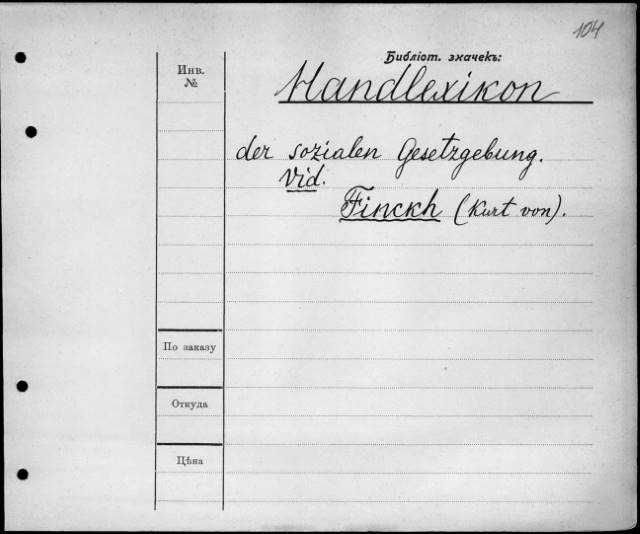 104
Библіот. значекъ:
Инв.
№
Handlexikon
der sozialen Gesetzgebung.
Vid.
Finckh (Kurt von).
По заказу
Откуда
Цѣна